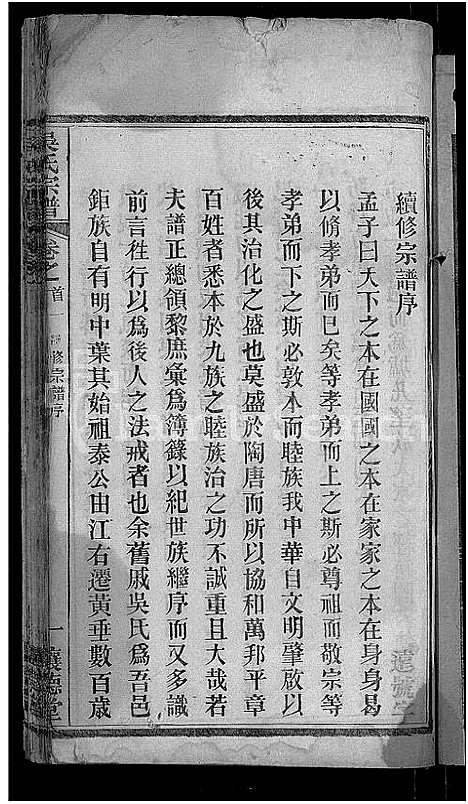 續修宗譜序
孟子曰天下之本在國國之本在家家之本在身身曷
以脩孝弟而已矣等孝弟而上之斯必尊祖而敬宗等
孝弟而下之斯必敦本而睦族我中華自文明肇啟以
後其治化之盛也莫盛於陶唐而所以協和萬邦平章
百姓者悉本於九族之睦族治之功不誠重且大哉若
夫譜正總領黎庶彙為簿錄以紀世族繼序而又多識
前言徃行以為後人之法戒者也余舊戚吳氏為吾邑
鉅族自有明中葉其始祖泰公由江右遷黃垂數百歲
吳氏宗譜
卷之首
修宗譜序
一
德堂